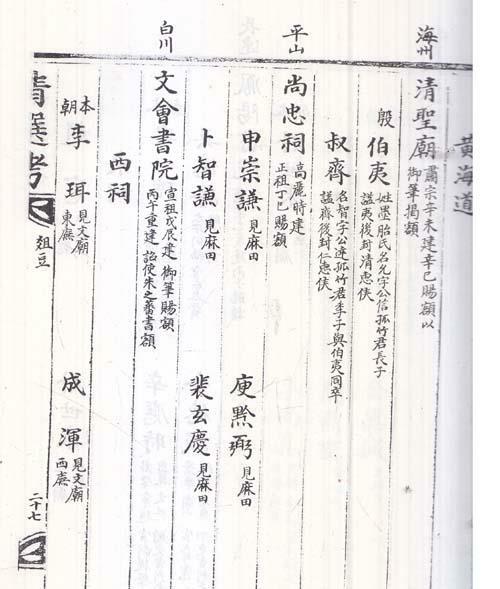 黃海道
海州
清聖廟 肅宗辛未建辛巳賜額以
御筆揭額
殷 伯夷 姓墨胎氏名允字公信孤竹君長子
謚夷後封清惠侯
叔齊 名智字公達孤竹君季子與伯夷同卒
謚齊後封仁惠侯
平山
尚忠祠 高麗時建
正祖丁巳賜額
申崇謙 見麻田 庾黔弼 見麻田
卜智謙 見麻田 裴玄慶 見麻田
白川
文會書院 宣祖戊辰建 御筆賜額
丙午重建 詔使朱之蕃書額
西祠
本朝 李珥 見文廟東廡 成渾 見文廟西廡
清選考 俎豆 二十七